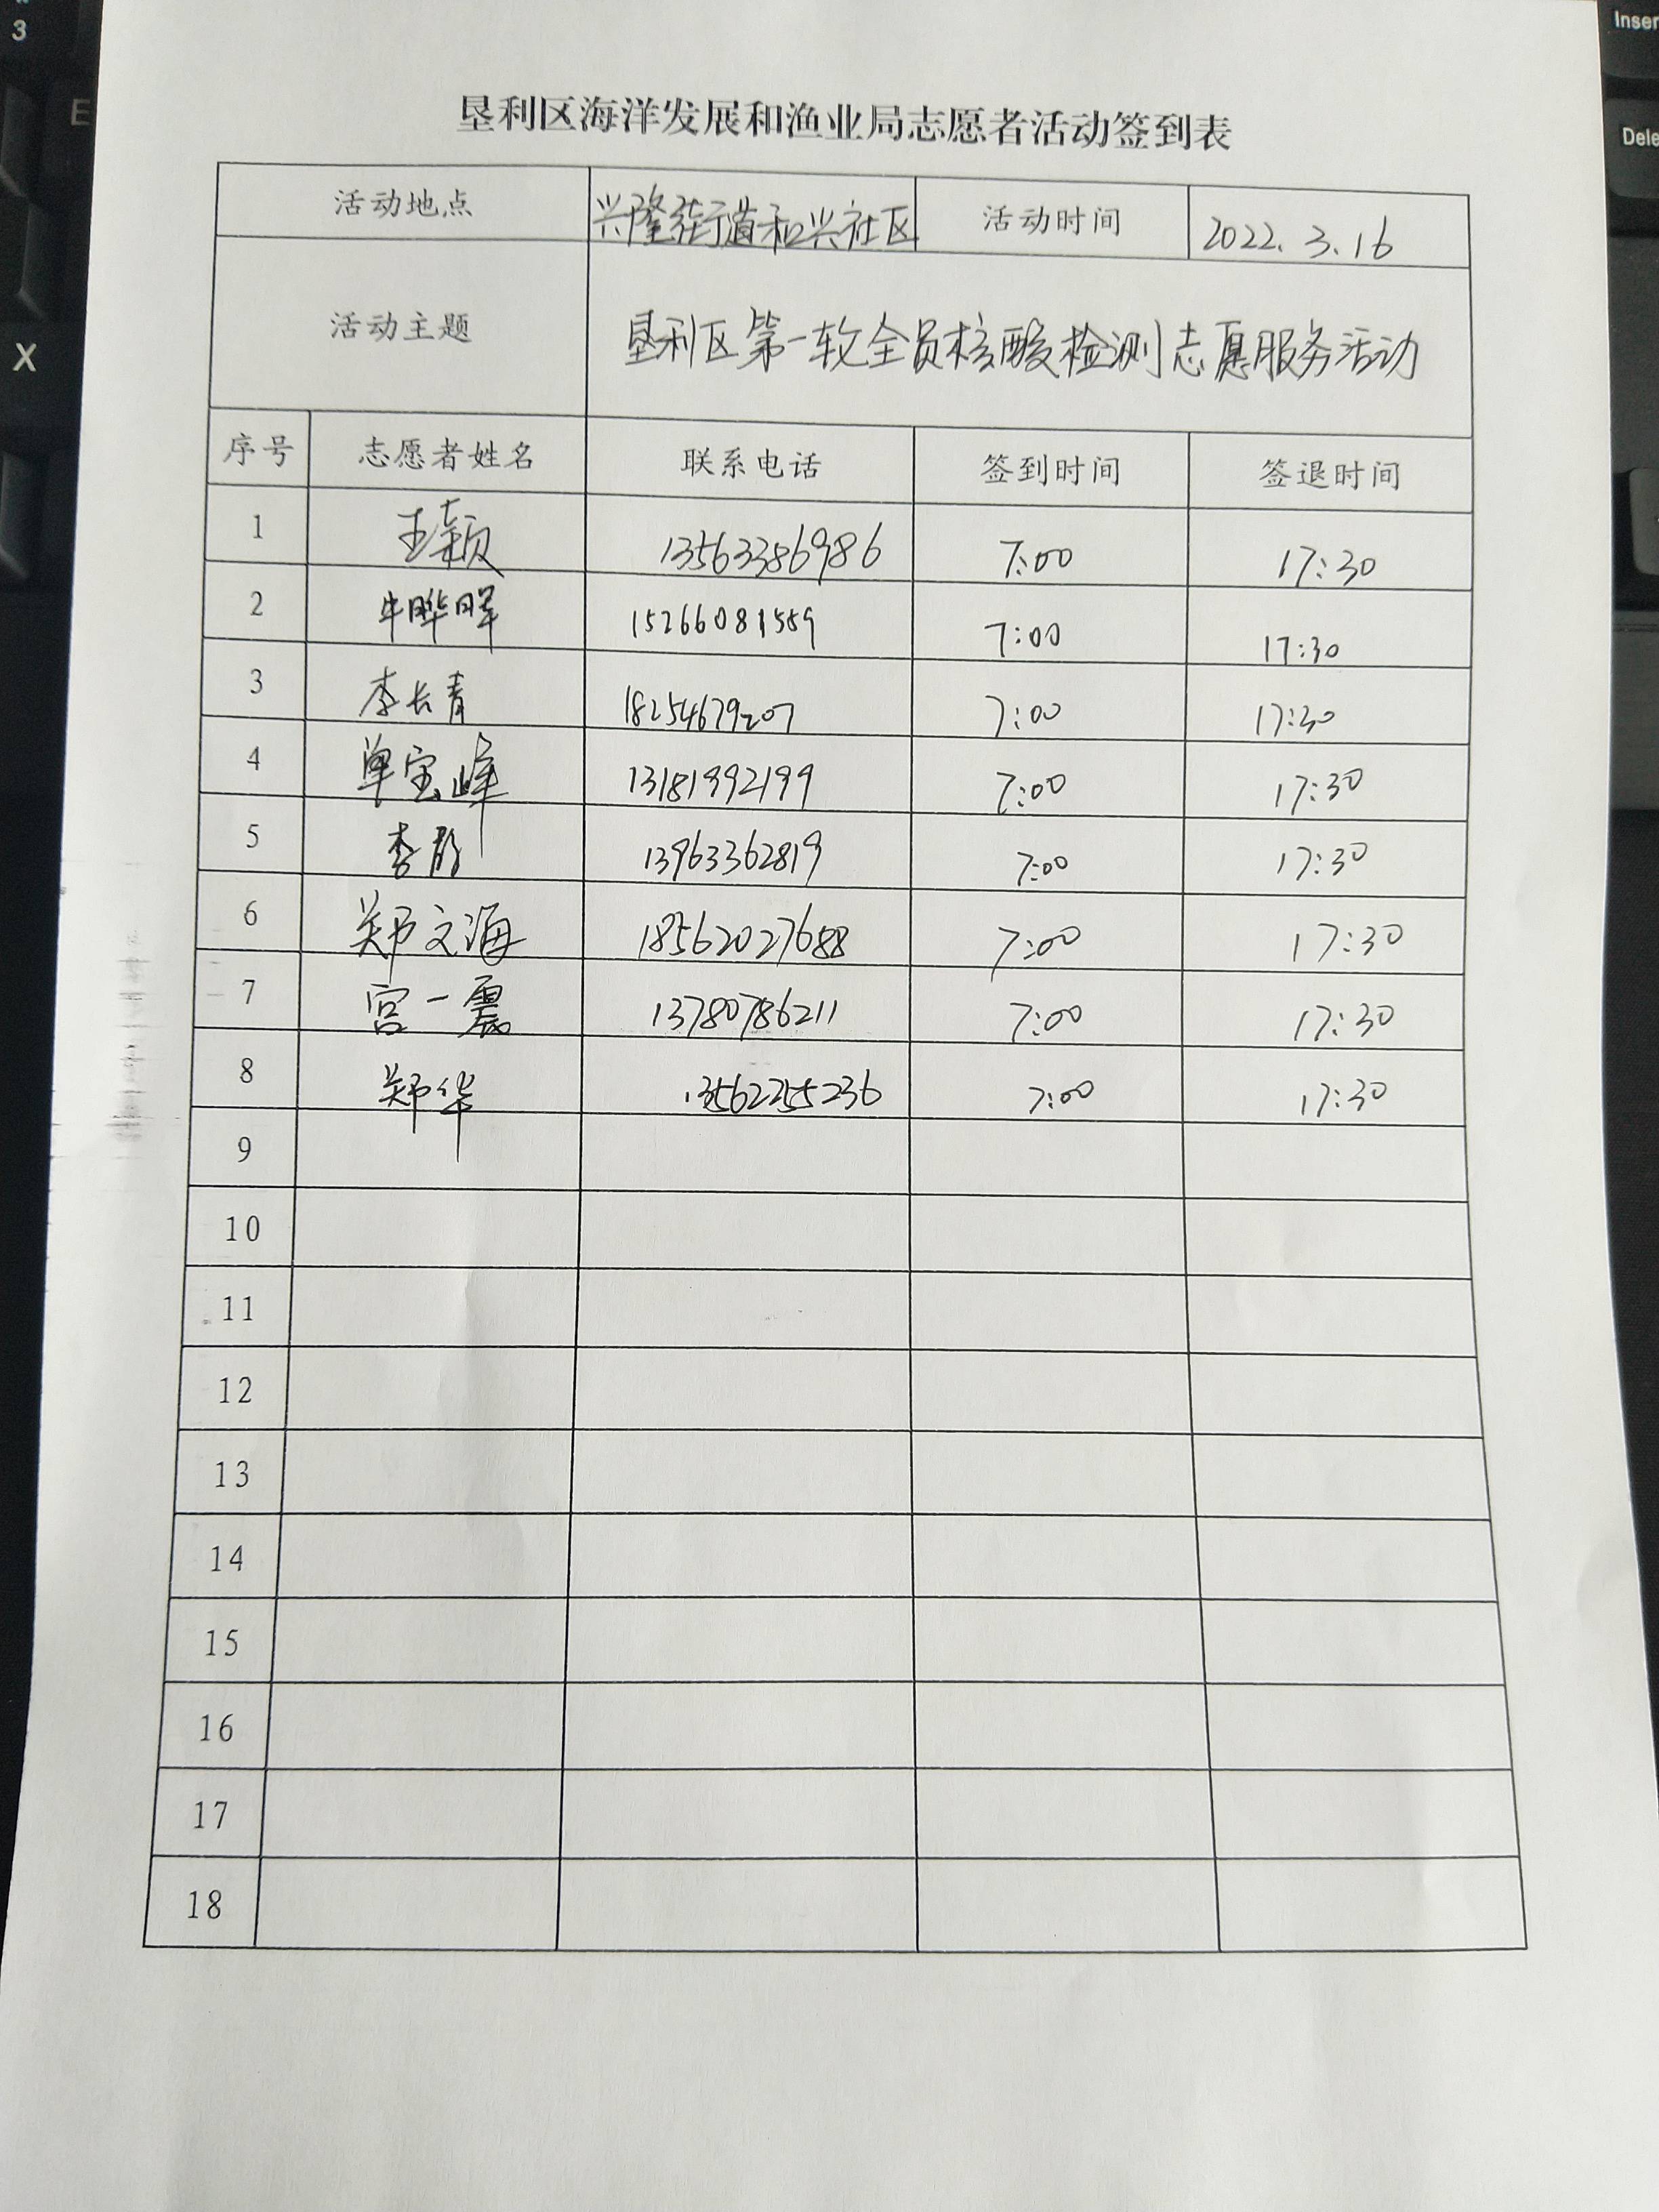 垦利区海洋发展和渔业局志愿者活动签到表
活动地点 兴隆街道和兴社区 活动时间 2022.3.16
活动主题 垦利区第一轮全员核酸检测志愿服务活动
序号 志愿者姓名 联系电话 签到时间 签退时间
1 王颖 13563386986 7:00 17:30
2 牛晔晖 15266081559 7:00 17:30
3 李长青 18254679207 7:00 17:30
4 单宝峰 13181992199 7:00 17:30
5 李 13963362819 7:00 17:30
6 郑文海 18562027688 7:00 17:30
7 宫一震 13780786211 7:00 17:30
8 郑华 13562255236 7:00 17:30
9
10
11
12
13
14
15
16
17
18
3
E
X
Inser
Dele